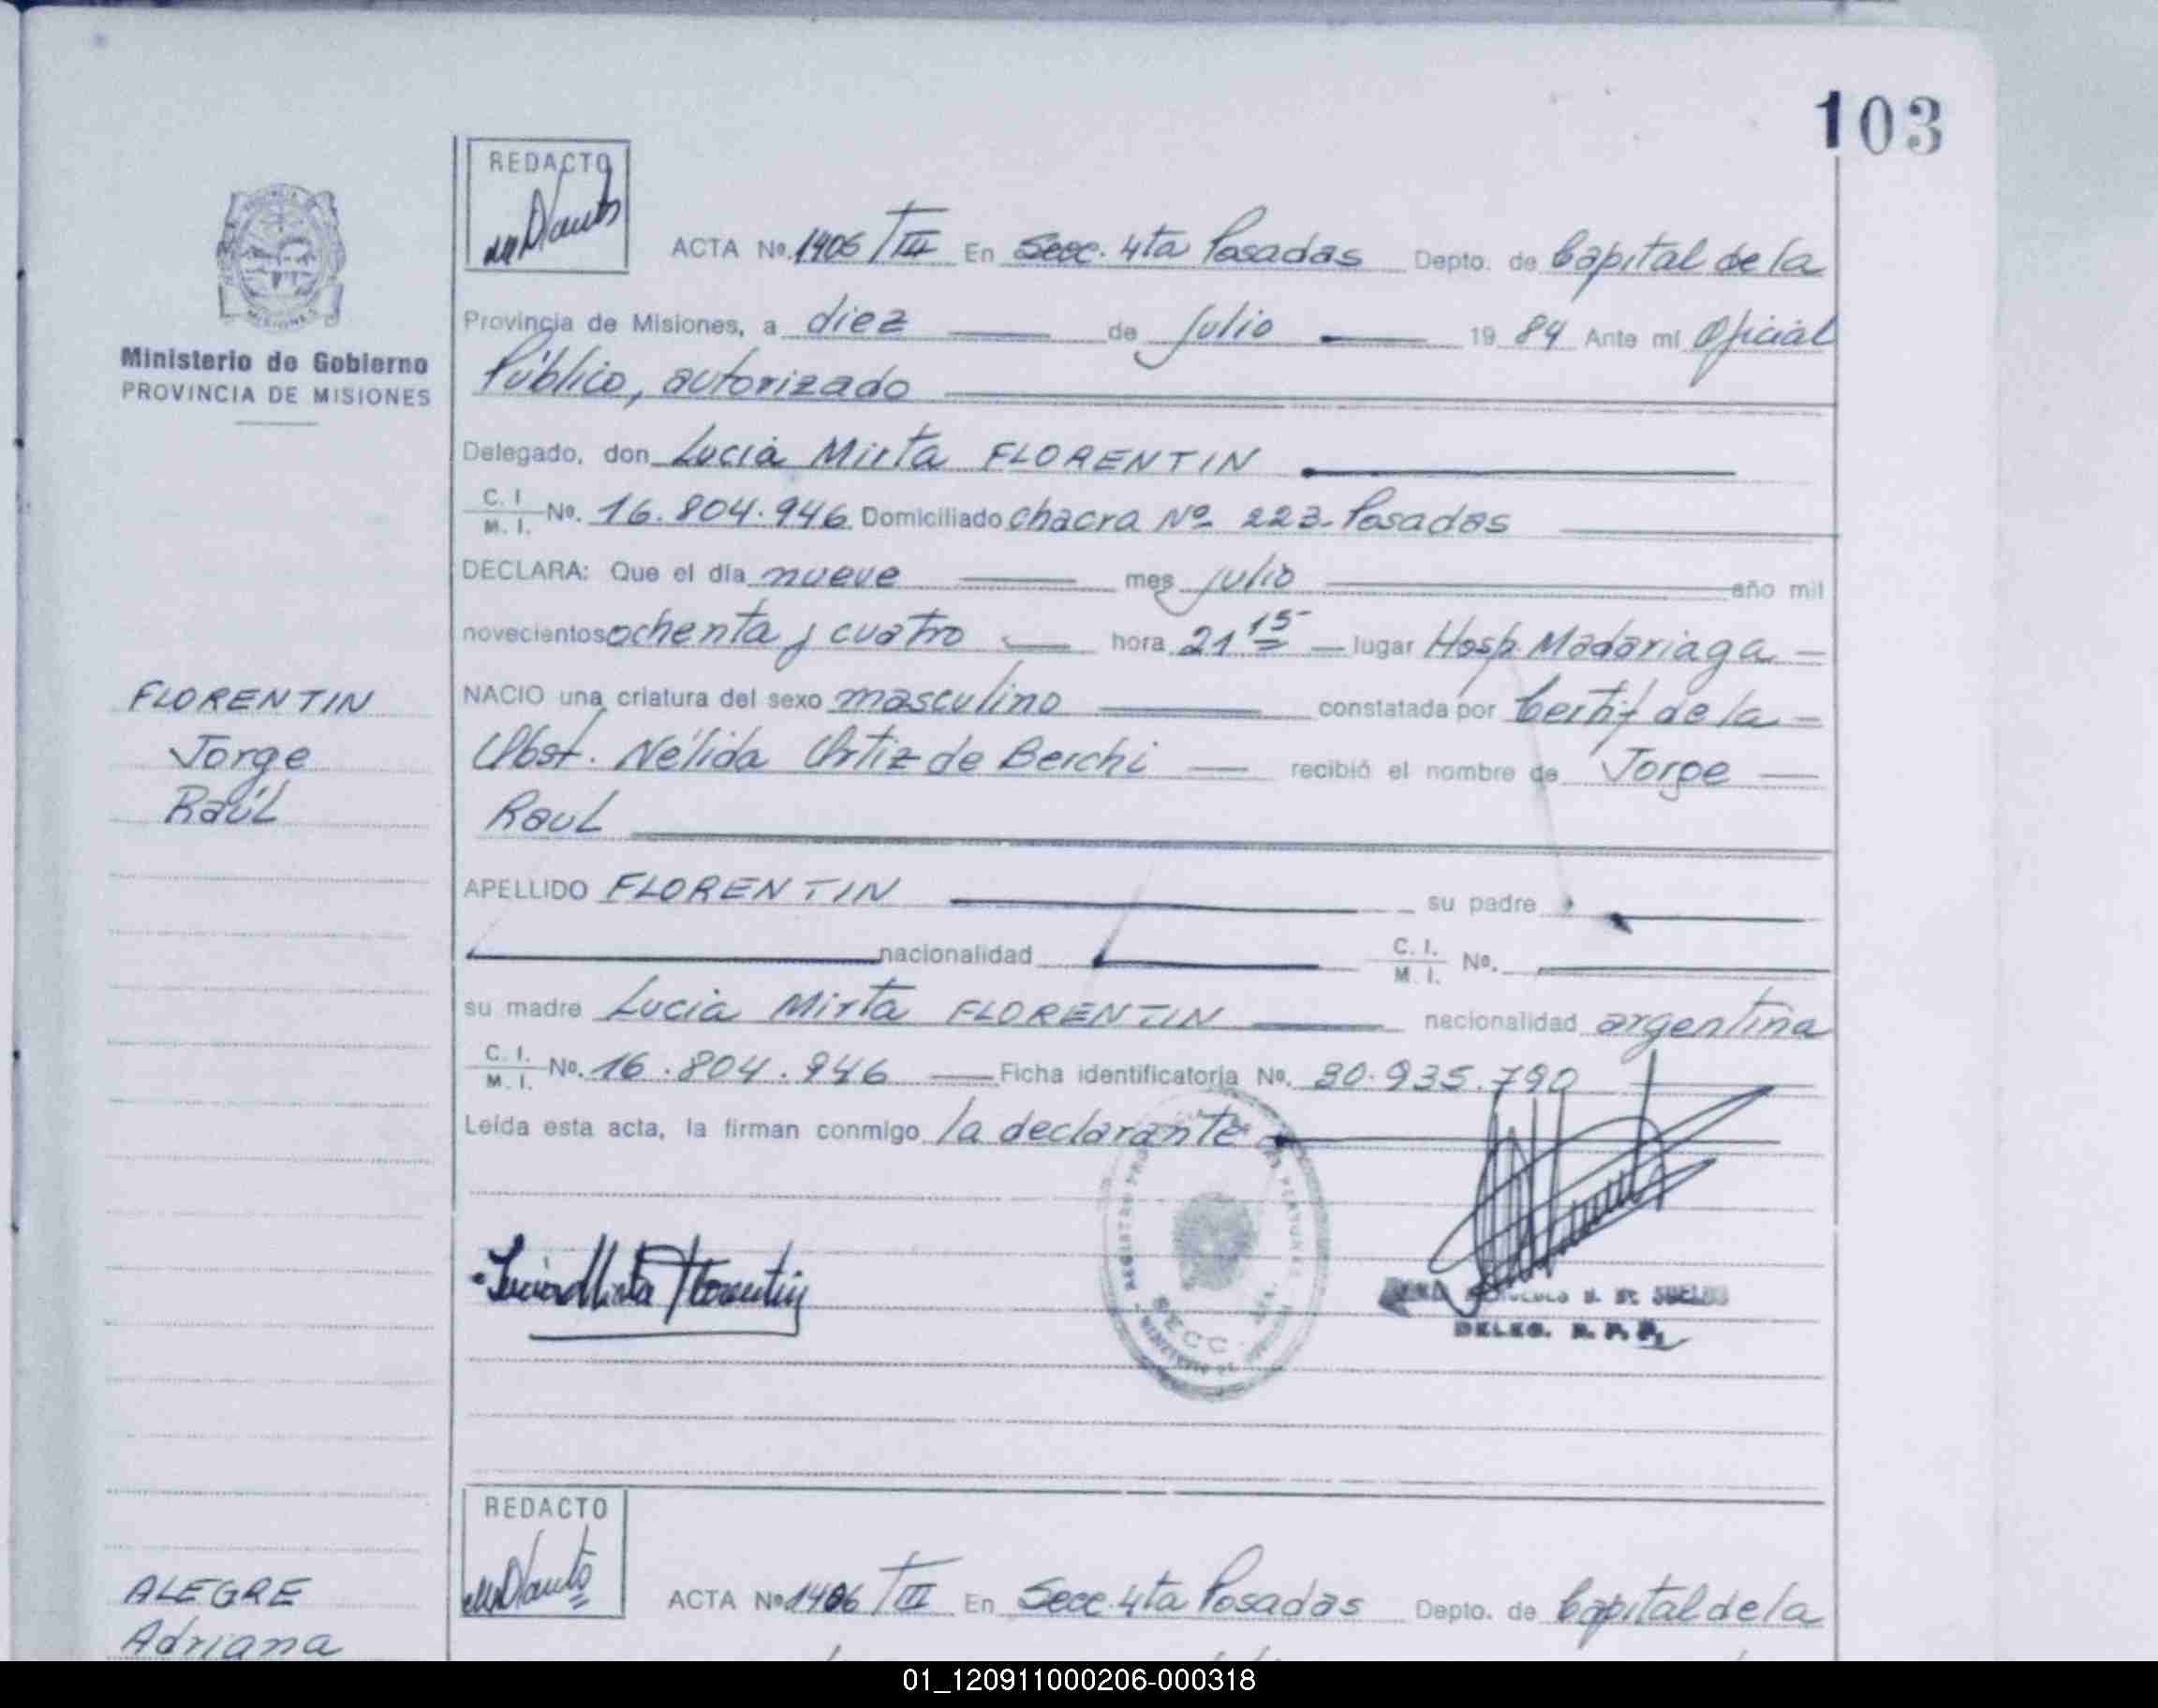 103
REDACTO
ACTA No. 1406 T III En Secc. 4ta Posadas Depto. de Capital de la
Provincia de Misiones, a diez de Julio 19 84 Ante mi Oficial
Ministerio de Gobierno
PROVINCIA DE MISIONES
Público, autorizado
Delegado, don Lucia Mirta FLORENTIN
C. I. M. I. No. 16.804.946 Domiciliado chacra Nº 223. Posadas
DECLARA: Que el día nueve mes julio año mil
novecientos ochenta y cuatro hora 21 15 lugar Hosp. Madariaga
FLORENTIN
Jorge
Raúl
NACIO una criatura del sexo masculino constatada por Certif de la
Obst. Nélida Ortiz de Berchi recibió el nombre de Jorge
Raul
APELLIDO FLORENTIN su padre
nacionalidad C. I. M. I. No.
su madre Lucia Mirta FLORENTIN nacionalidad argentina
C. I. M. I. No. 16.804.946 Ficha identificatoria No. 30.935.790
Leída esta acta, la firman conmigo la declarante
Lucia Mirta Florentin
SECC.
DELEG. R. P. P.
REDACTO
ACTA No 1406 T III En Secc. 4ta Posadas Depto. de Capital de la
ALEGRE
Adriana
01_120911000206-000318